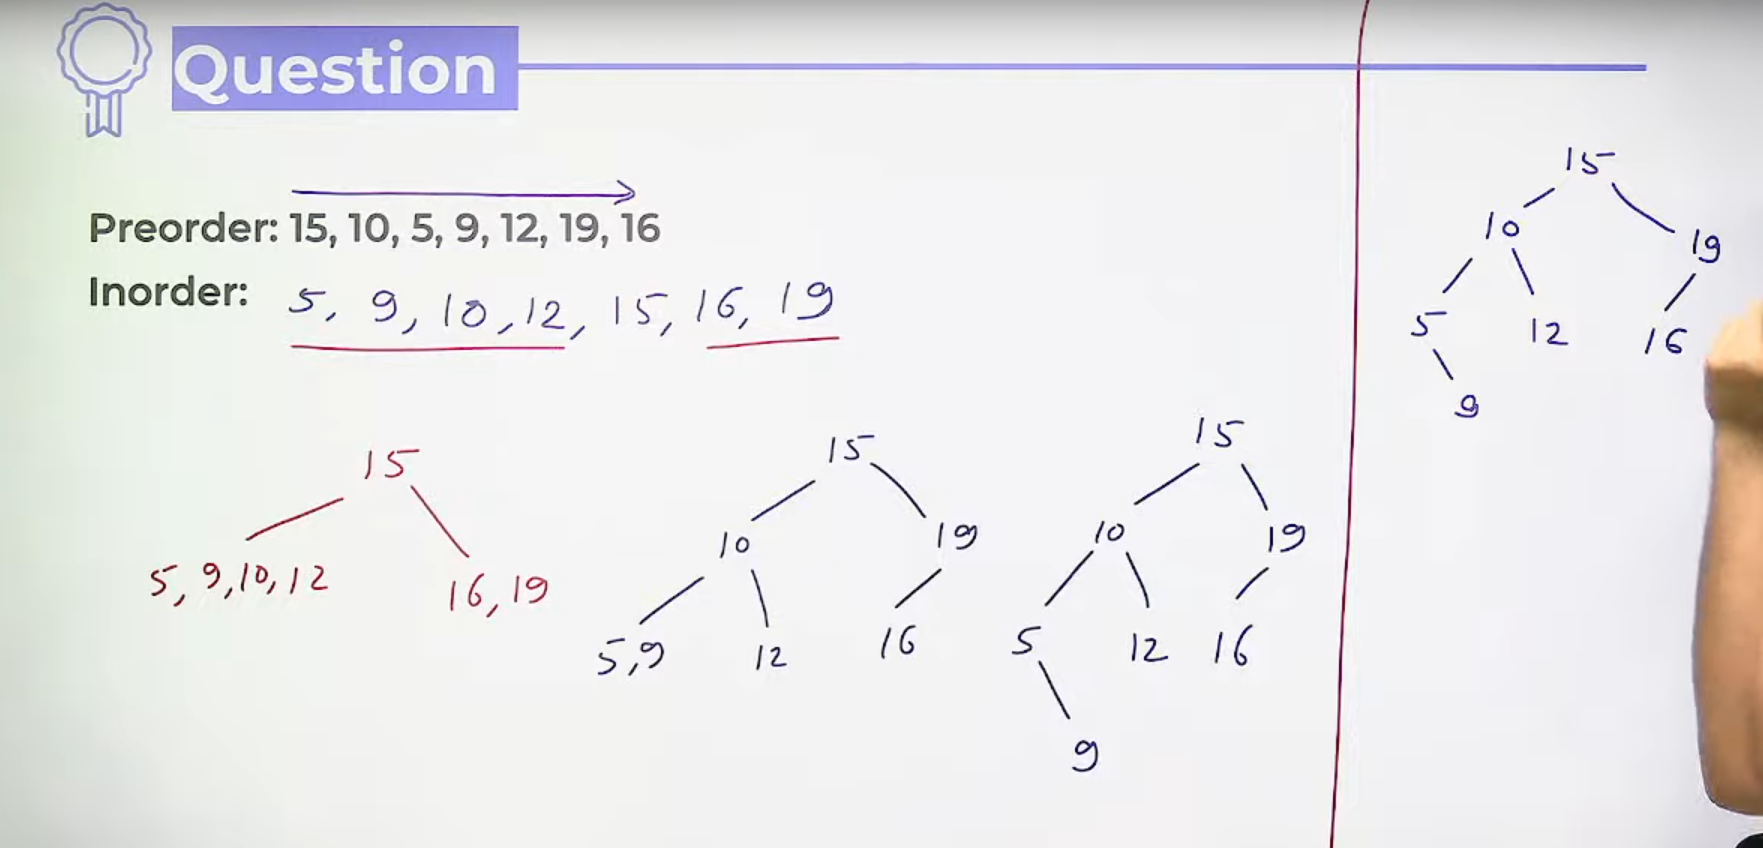 Question
Preorder: 15, 10, 5, 9, 12, 19, 16
Inorder: 5, 9, 10, 12, 15, 16, 19
15
5, 9, 10, 12
16, 19
15
10
19
5, 9
12
16
15
10
19
5
12
16
9
15
10
19
5
12
16
9